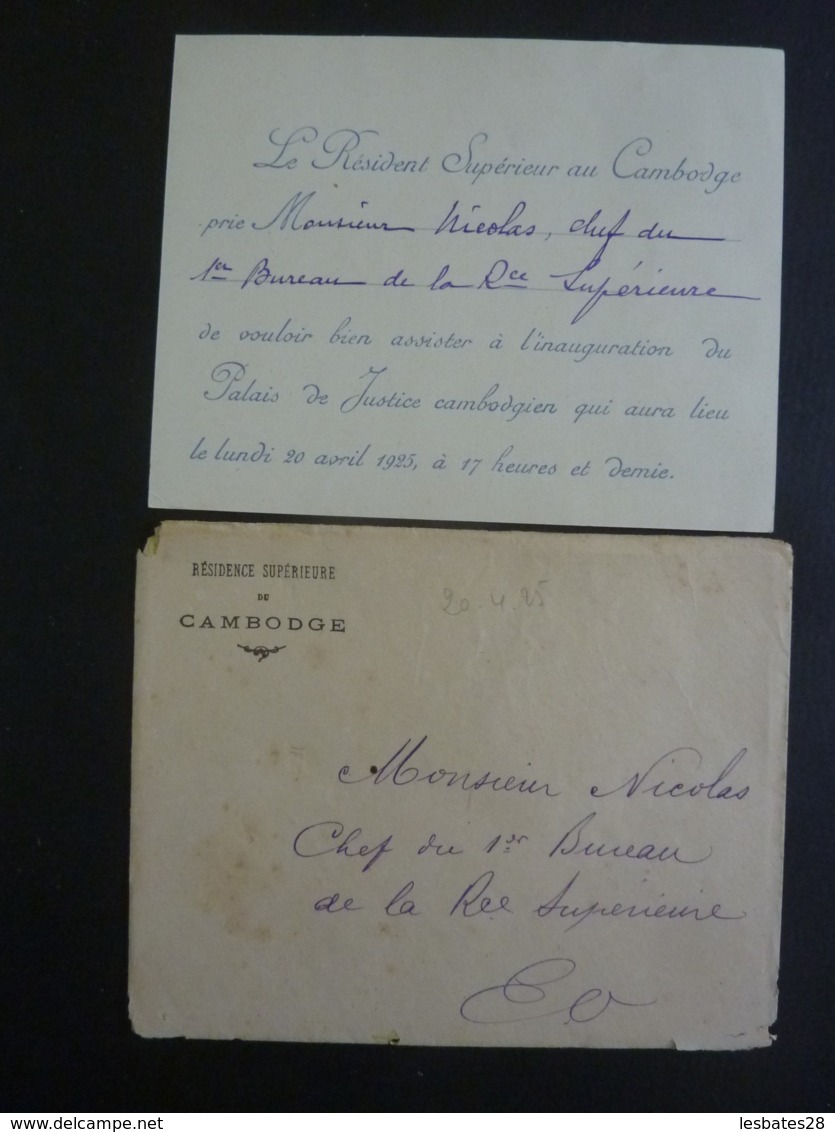 Le Résident Supérieur au Cambodge
prie Monsieur Nicolas, chef du
1er Bureau de la Rce Supérieure
de vouloir bien assister à l'inauguration du
Palais de Justice cambodgien qui aura lieu
le lundi 20 avril 1925, à 17 heures et demie.
RÉSIDENCE SUPÉRIEURE
DU
CAMBODGE
20-4-25
Monsieur Nicolas
Chef du 1er Bureau
de la Rce Supérieure
EV
www.delcampe.net
lesbates28